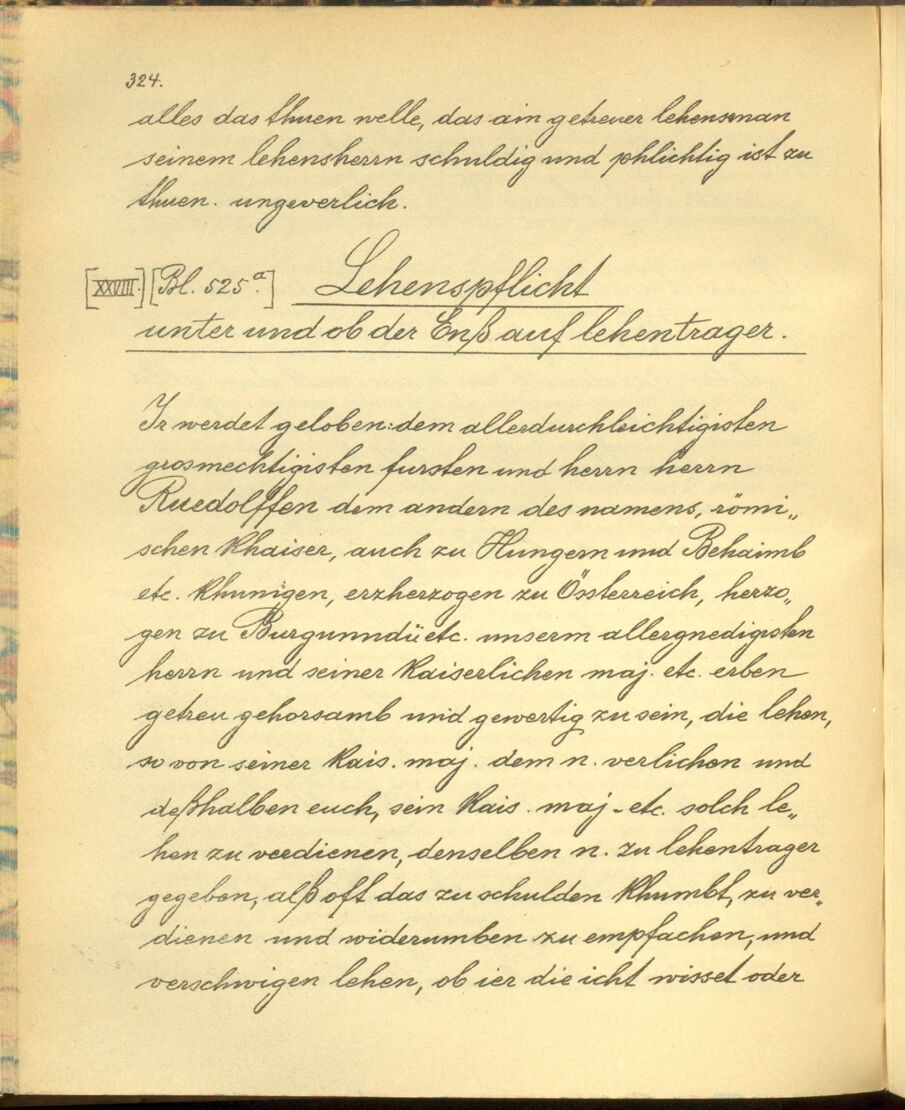 324.
alles das thuen welle, das ain getreuer lehensman
seinem lehensherrn schuldig und phlichtig ist zu
thuen. ungeverlich.
[XXVIII.] [Bl. 525a.] Lehenspflicht
unter und ob der Enß auf lehentrager.
Ir werdet geloben: dem allerdurchleichtigisten
grosmechtigisten fursten und herrn herrn
Ruedolffen dem andern des namens, römi„
schen khaiser, auch zu Hungern und Behaimb
etc. khunigen, erzherzogen zu Össterreich, herzo„
gen zu Burgunndü etc. unserm allergnedigisten
herrn und seiner kaiserlichen maj. etc. erben
getreu gehorsamb und gewertig zu sein, die lehen,
so von seiner kais. maj. dem n. verlichen und
deßhalben euch, sein kais. maj. etc. solch le„
hen zu verdienen, denselben n. zu lehentrager
gegeben, alß oft das zu schulden khumbt, zu ver„
dienen und widerumben zu empfachen, und
verschwigen lehen, ob ier die icht wisset oder